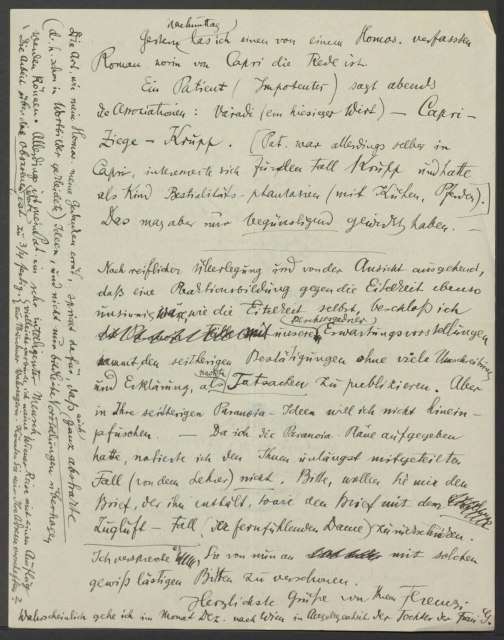 nachmittag
Gestern las ich einen von einem Homos. verfassten
Roman, worin von Capri die Rede ist.
Ein Patient (Impotenter) sagt abends
die Assoziationen: Váradi (ein hiesiger Wirt) – Capri –
Ziege – Krupp. (Pat. war allerdings selber in
Capri, interessierte sich für den Fall Krupp und hatte
als Kind Bestialitäts-phantasien (mit Kühen, Pferden).
Das mag aber nur begünstigend gewirkt haben. –
Nach reiflicher Überlegung und von der Ansicht ausgehend,
daß eine Reaktionsbildung gegen die Eitelkeit ebenso
unsinnig wäre wie die Eitelkeit selbst, beschloß ich
unsere Erwartungsvorstellungen
sammt den seitherigen Bestätigungen ohne viele Umschreibung
und Erklärung, als nackte Tatsachen zu publizieren. Aber
in Ihre seitherigen Paranoia-Ideen will ich nicht hinein-
pfuschen. – Da ich die Paranoia-Pläne aufgegeben
hatte, notierte ich den Ihnen unlängst mitgeteilten
Fall (von dem Lehrer) nicht. Bitte, wollen Sie mir den
Brief, der ihn enthält, sowie den Brief mit dem
Zugluft-Fall (der fernfühlenden Dame) zurückschicken.
Ich verspreche es, Sie von nun an mit solchen
gewiß lästigen Bitten zu verschonen.
Herzlichste Grüße von Ihrem Ferenczi
Wahrscheinlich gehe ich im Monat Dez. nach Wien in Angelegenheit der Tochter der Frau G.
Die Art, wie mein Homos. meine Gedanken errät, spricht dafür, daß auch ganz abstrakte
(d. h. schon in Wortbilder gekleidete) Ideen, und nicht nur bildliche Vorstellungen übertragen
werden können. Allerdings ist mein Pat. ein sehr intelligenter Mensch.
Die Arbeit über das